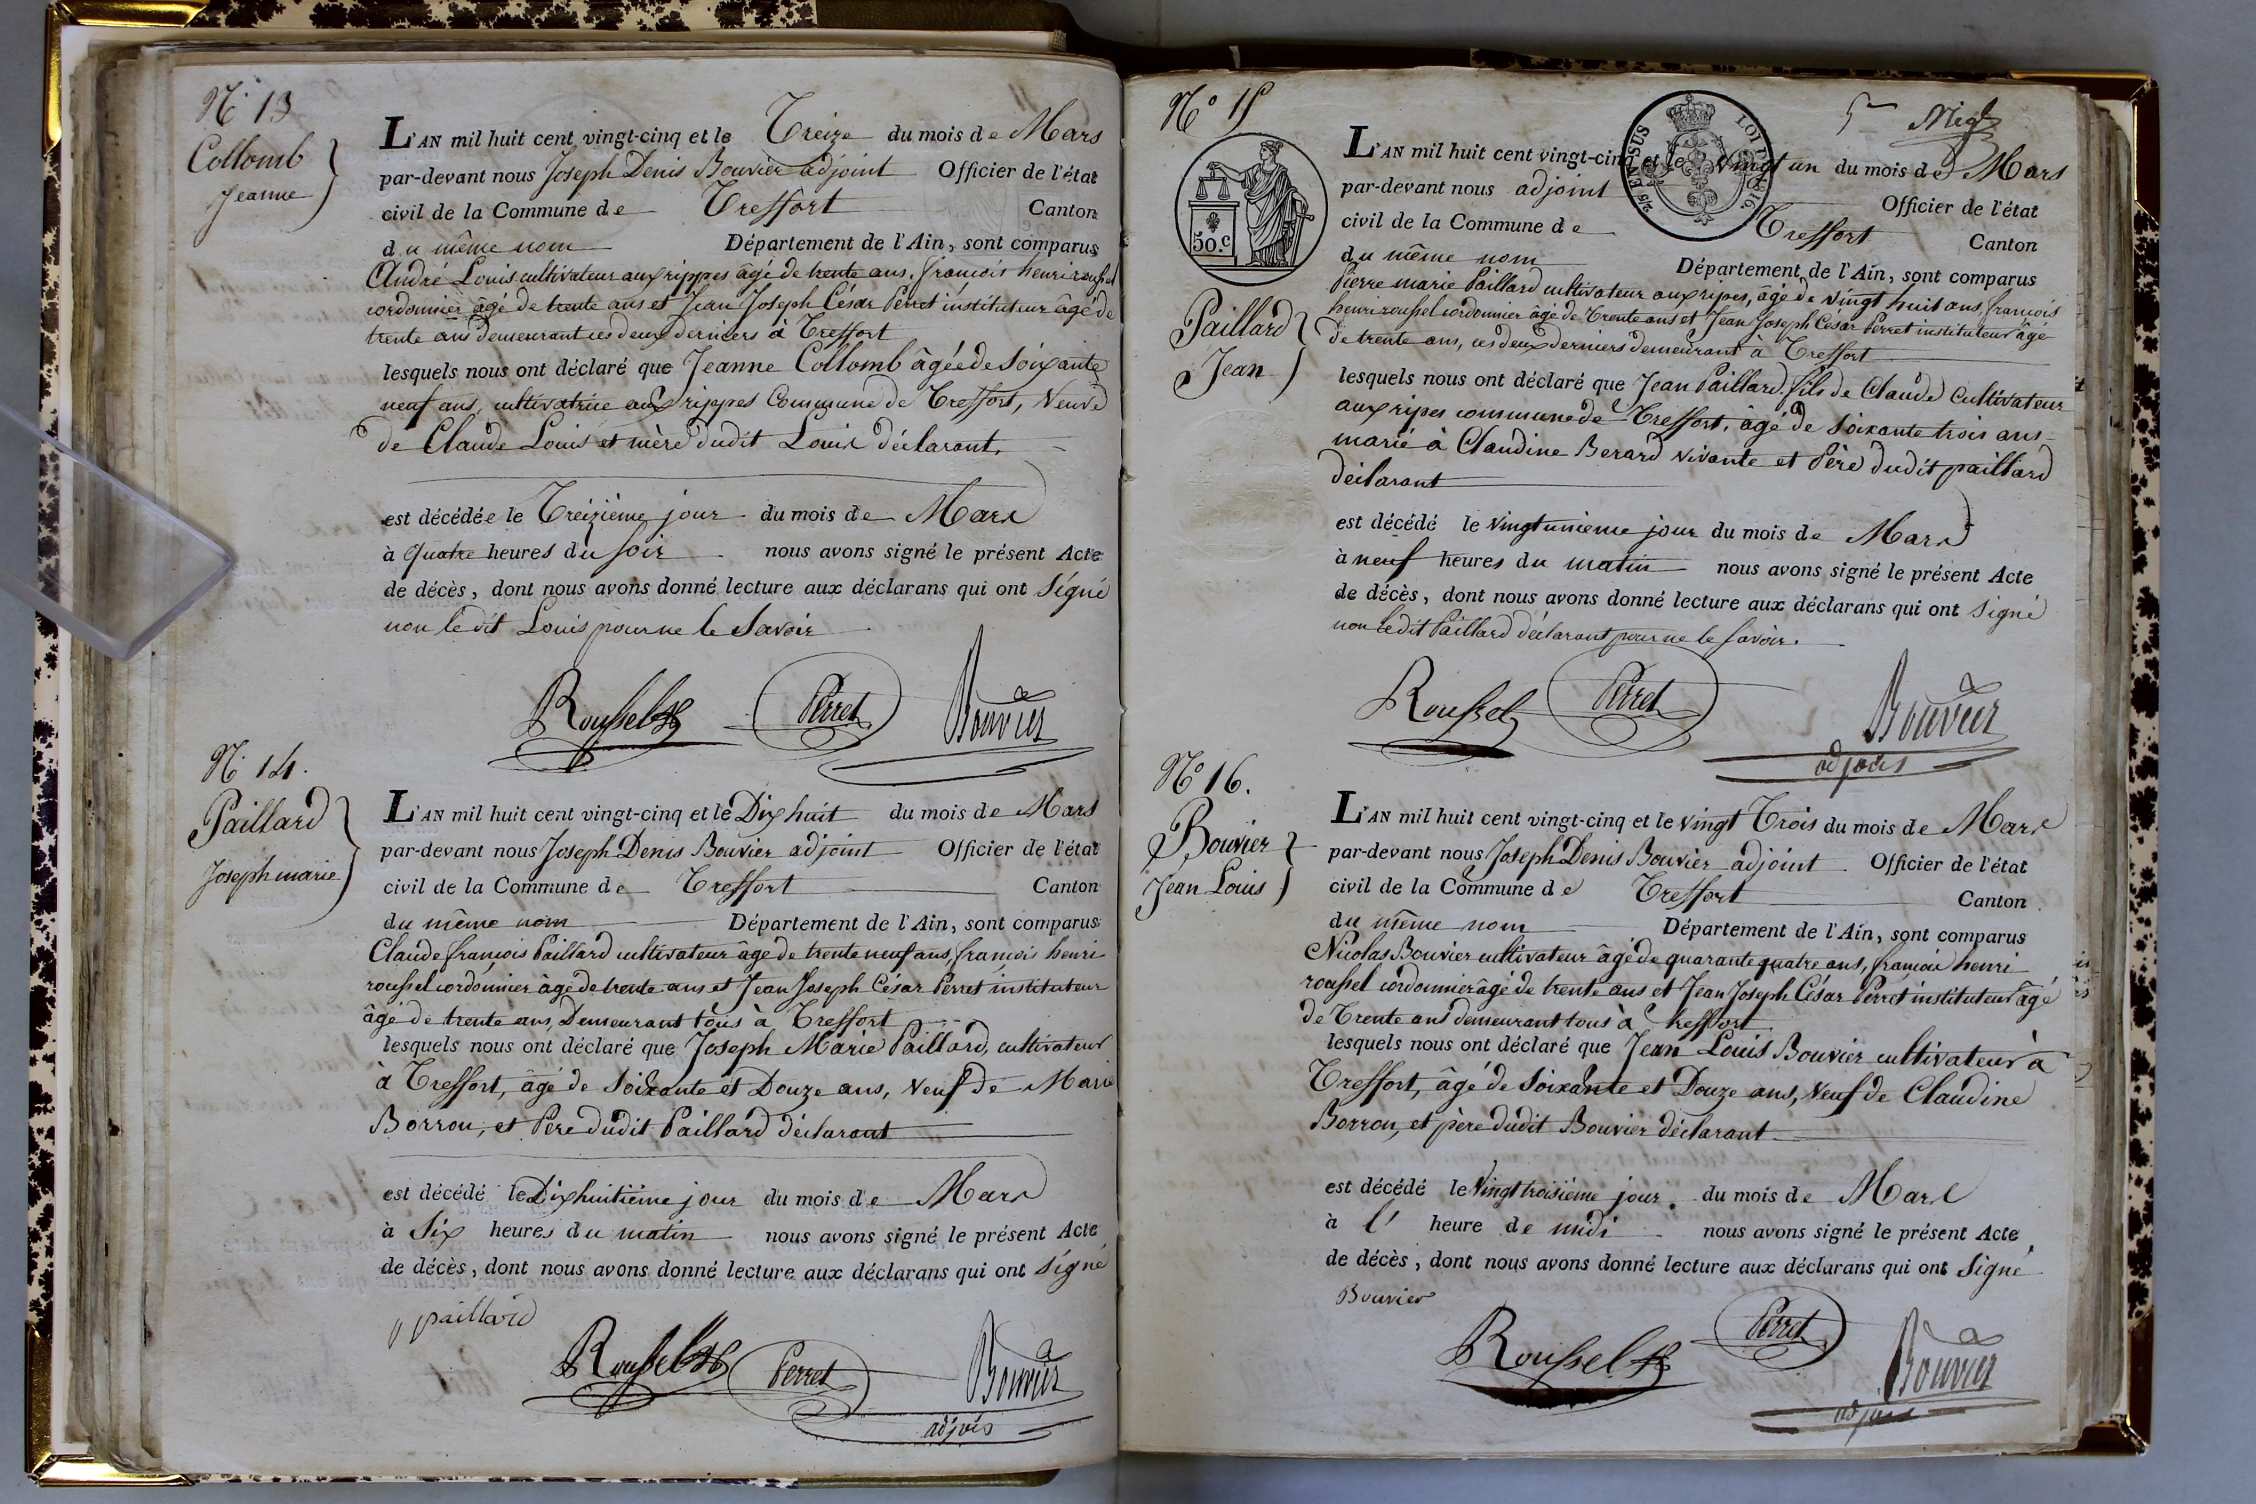 N° 13
Collomb
Jeanne
L'AN mil huit cent vingt-cinq et le Treize du mois de Mars
par-devant nous Joseph Denis Bouvier adjoint Officier de l'état
civil de la Commune de Treffort Canton
du même nom Département de l'Ain, sont comparus
André Louis cultivateur aux rippes âgé de trente ans, françois henri roussel
cordonnier âgé de trente ans et Jean Joseph César Perret instituteur âgé de
trente ans demeurant ces deux derniers à Treffort
lesquels nous ont déclaré que Jeanne Collomb âgée de Soixante
neuf ans, cultivatrice aux rippes Commune de Treffort, Veuve
de Claude Louis et mère dudit Louis déclarant.
est décédée le Treizième jour du mois de Mars
à quatre heures du soir nous avons signé le présent Acte
de décès, dont nous avons donné lecture aux déclarans qui ont signé
non ledit Louis pour ne le Savoir
Roussel Perret Bouvier
N° 14.
Paillard
Joseph marie
L'AN mil huit cent vingt-cinq et le Dix huit du mois de Mars
par-devant nous Joseph Denis Bouvier adjoint Officier de l'état
civil de la Commune de Treffort Canton
du même nom Département de l'Ain, sont comparus
Claude françois Paillard cultivateur âgé de trente neuf ans, françois henri
roussel cordonnier âgé de trente ans et Jean Joseph César Perret instituteur
âgé de trente ans, Demeurant tous à Treffort
lesquels nous ont déclaré que Joseph Marie Paillard, cultivateur
à Treffort, âgé de Soixante et Douze ans, Veuf de Marie
Borron, et Père dudit Paillard déclarant
est décédé le Dixhuitième jour du mois de Mars
à Six heures du matin nous avons signé le présent Acte
de décès, dont nous avons donné lecture aux déclarans qui ont signé
paillard
Roussel Perret Bouvier
adjoint
N° 15
50.c
Paillard
Jean
L'AN mil huit cent vingt-cinq et le Vingt un du mois de Mars
par-devant nous adjoint Officier de l'état
civil de la Commune de Treffort Canton
du même nom Département de l'Ain, sont comparus
Pierre marie Paillard cultivateur aux ripes, âgé de vingt huit ans, françois
henri roussel cordonnier âgé de Trente ans et Jean Joseph César Perret instituteur âgé
de trente ans, ces deux derniers demeurant à Treffort
lesquels nous ont déclaré que Jean Paillard, fils de Claude Cultivateur
aux ripes commune de Treffort, âgé de Soixante trois ans
marié à Claudine Berard vivante et Père dudit paillard
déclarant
est décédé le Vingtunième jour du mois de Mars
à neuf heures du matin nous avons signé le présent Acte
de décès, dont nous avons donné lecture aux déclarans qui ont signé
non ledit Paillard déclarant pour ne le savoir.
Roussel Perret Bouvier
adjoint
N° 16.
Bouvier
Jean Louis
L'AN mil huit cent vingt-cinq et le vingt Trois du mois de Mars
par-devant nous Joseph Denis Bouvier adjoint Officier de l'état
civil de la Commune de Treffort Canton
du même nom Département de l'Ain, sont comparus
Nicolas Bouvier cultivateur âgé de quarante quatre ans, françois henri
roussel cordonnier âgé de trente ans et Jean Joseph César Perret instituteur âgé
de Trente ans demeurant tous à Treffort
lesquels nous ont déclaré que Jean Louis Bouvier cultivateur à
Treffort, âgé de Soixante et Douze ans, Veuf de Claudine
Borron, et père dudit Bouvier déclarant
est décédé le Vingttroisième jour du mois de Mars
à l' heure de midi nous avons signé le présent Acte
de décès, dont nous avons donné lecture aux déclarans qui ont signé
Bouvier
Roussel Perret Bouvier
adjoint